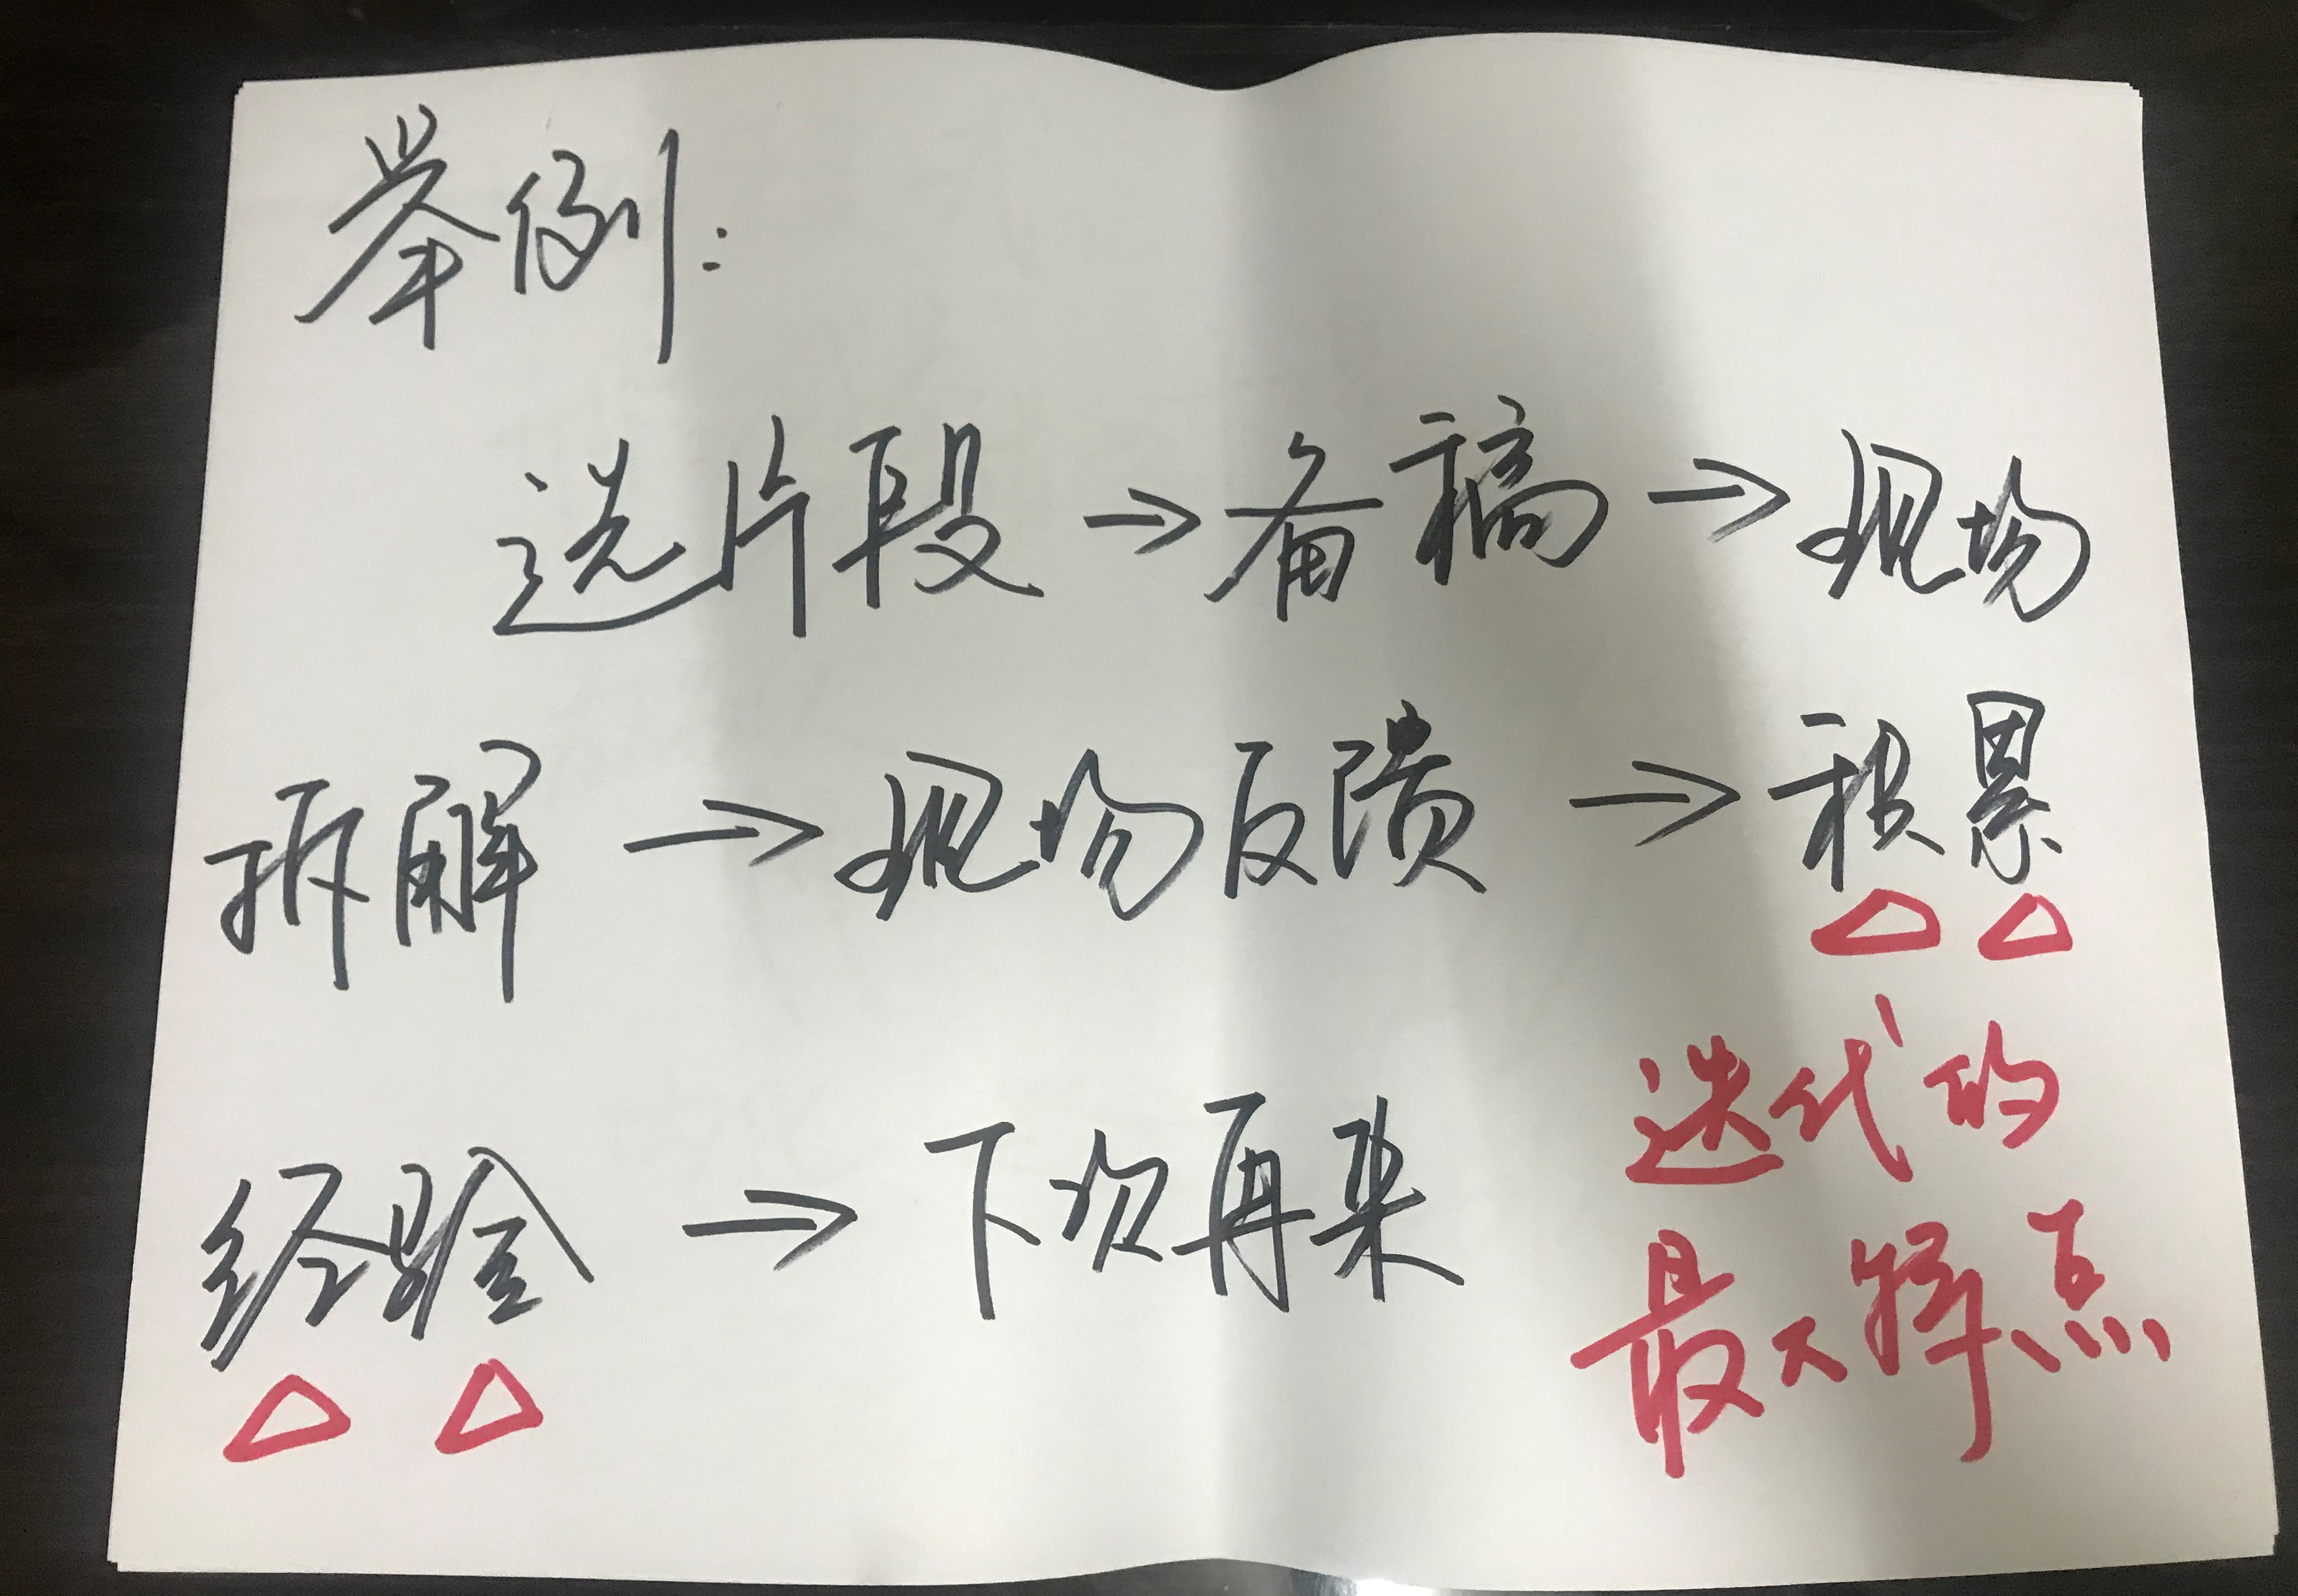 举例:
选片段→备稿→现场
拆解→现场反馈→积累
经验→下次再来
迭代的
最大特点